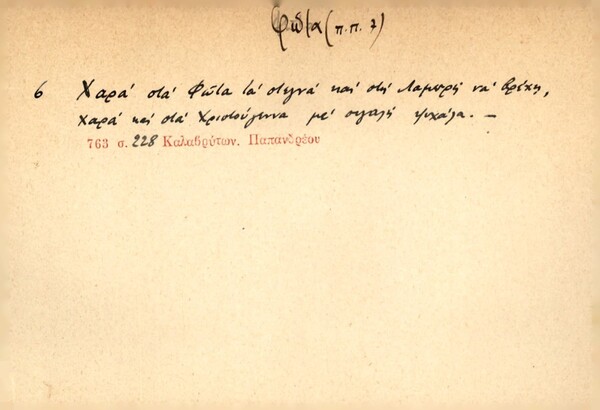 φῶτα (π.π. 7)
6 Χαρά στά Φῶτα τά στεγνά καί στή Λαμπρή νά βρέχῃ,
χαρά καί στά Χριστούγεννα μέ σιγαλή ψιχάλα. –
763 σ. 228 Καλαβρύτων. Παπανδρέου